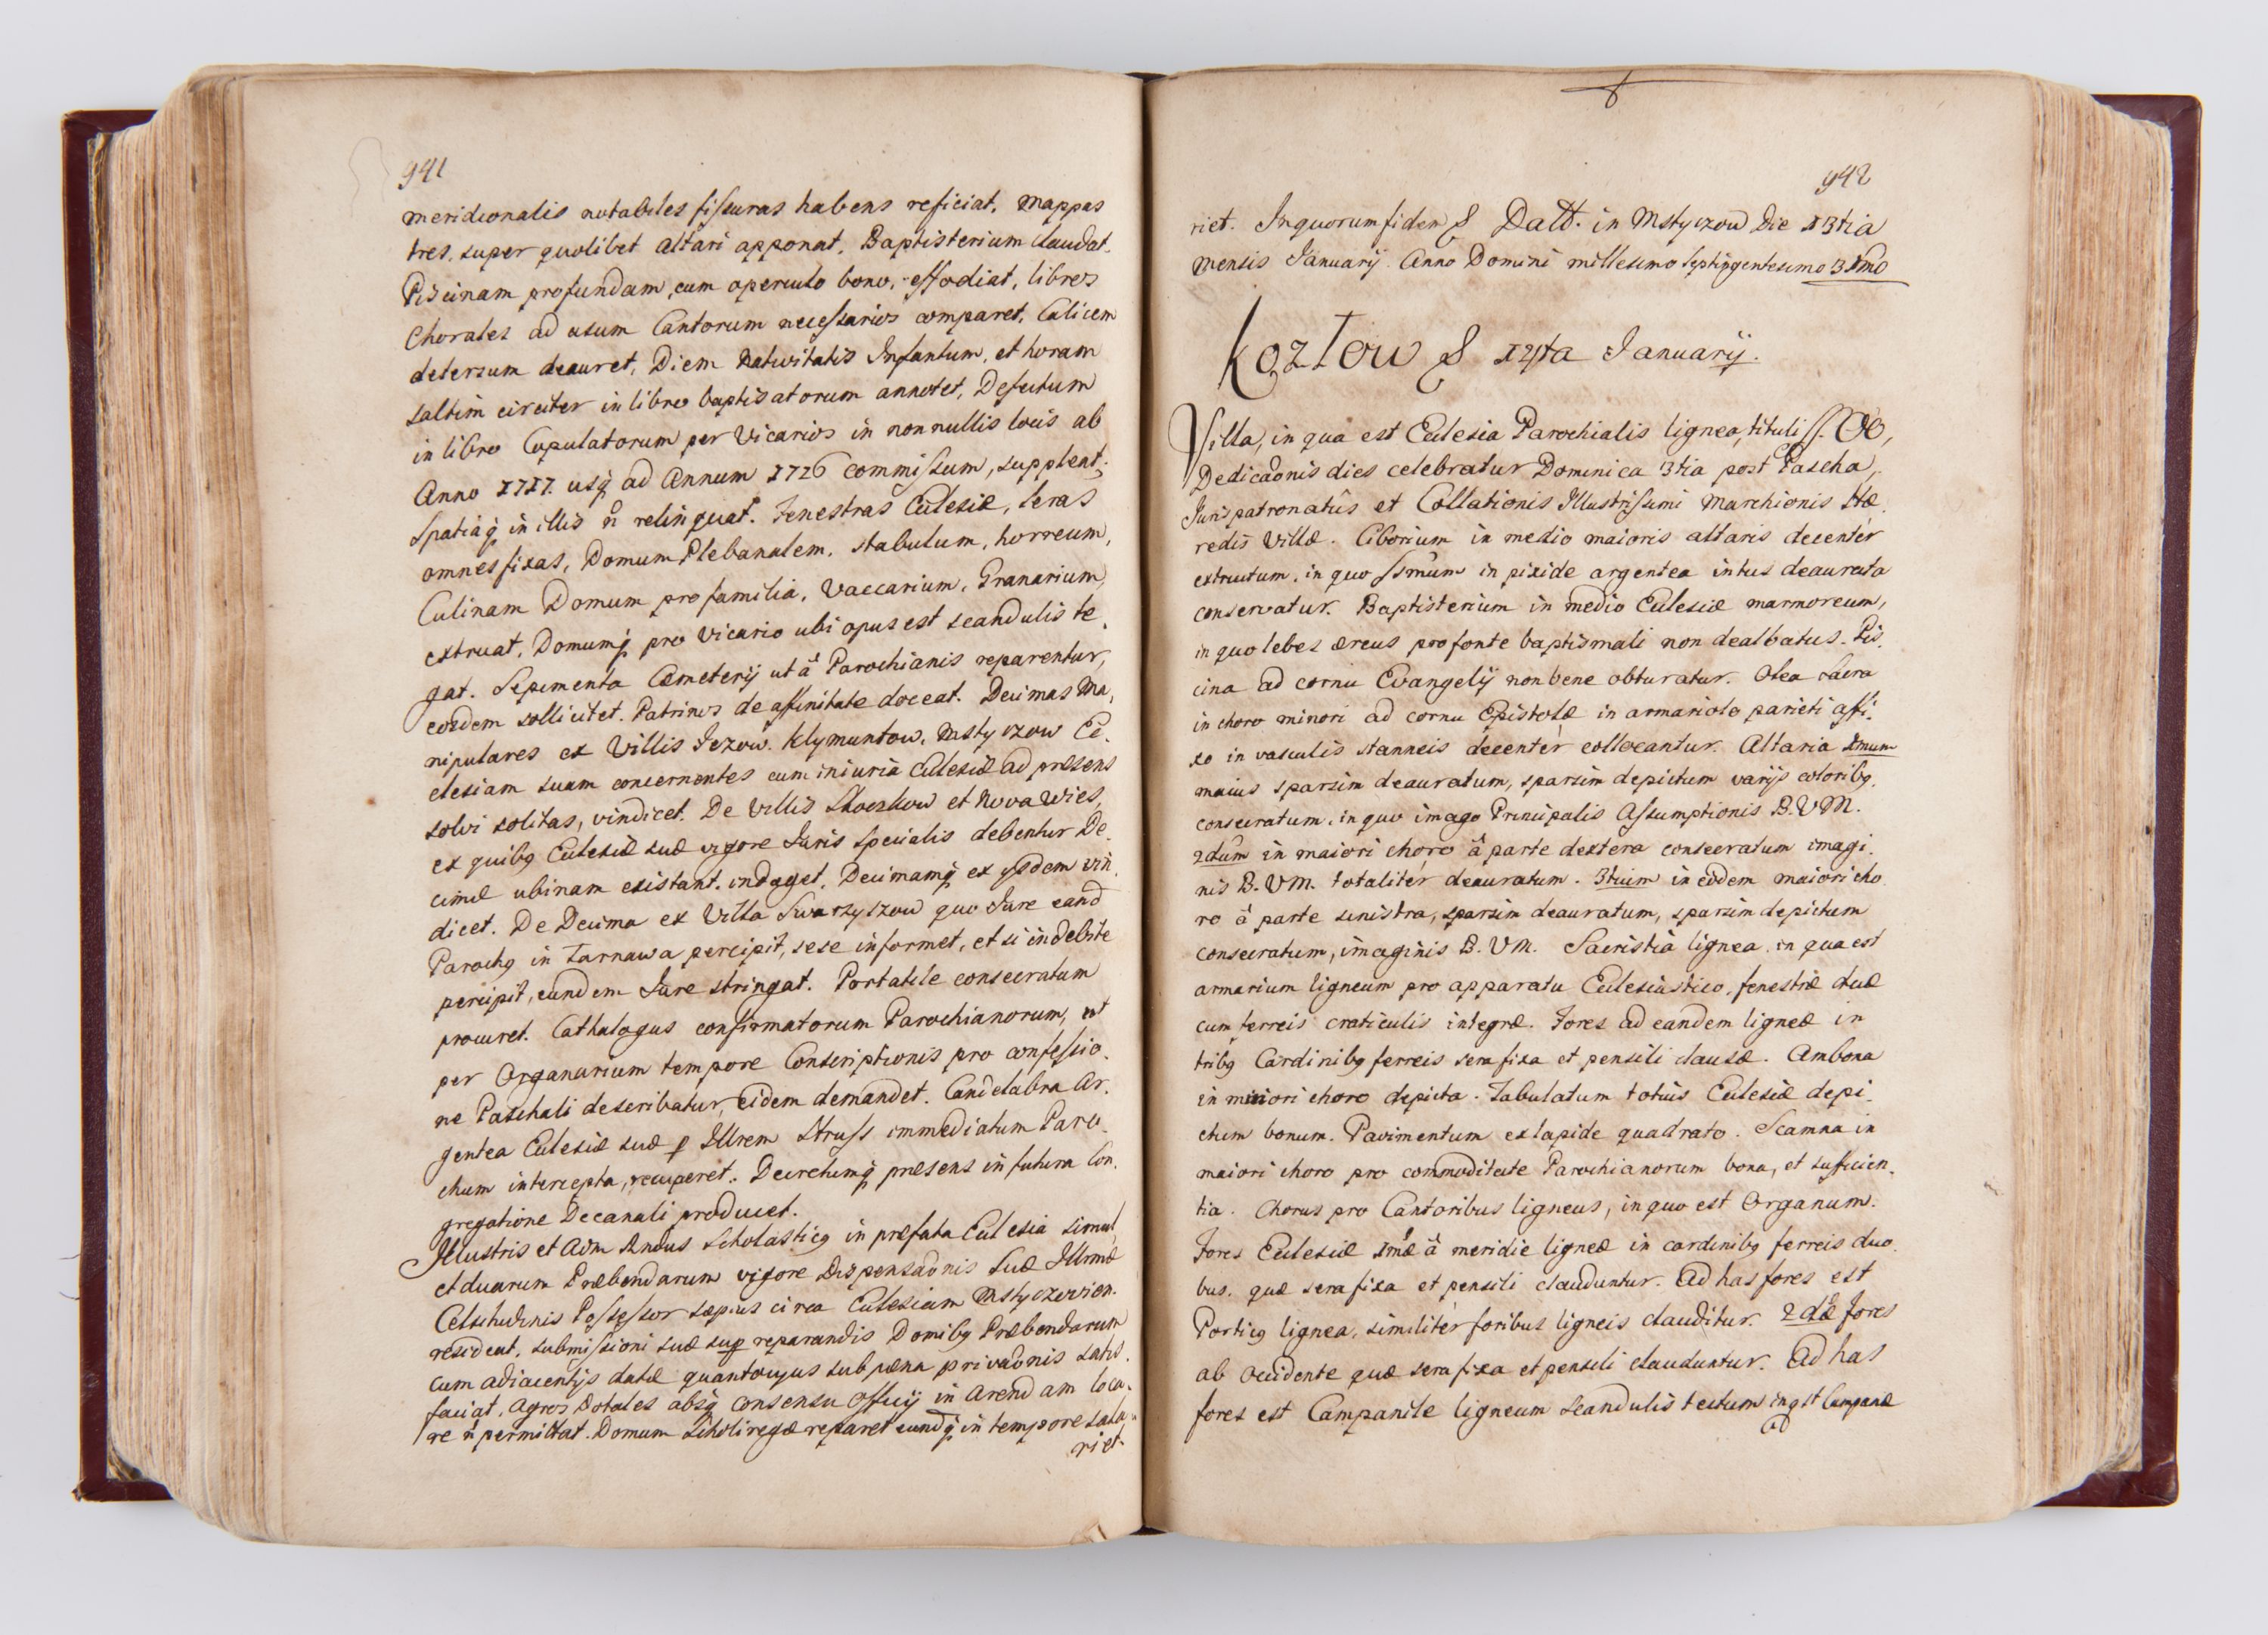 941
meridionalis notabiles fissuras habens reficiat, mappas
tres, super quolibet altari apponat, Baptisterium claudat.
Piscinam profundam, cum operculo bono, effodiat, libros
Chorales ad usum Cantorum necessarios comparet, Calicem
detersum deauret, Diem Nativitatis Infantum, et horam
saltim circiter in libro baptisatorum annotet, Defectum
in libro Copulatorum per Vicarios in nonnullis locis ab
Anno 1717. usq; ad Annum 1726 commissum, suppleat;
Spatiaq; in illis ñ relinquat. Fenestras Ecclesiæ, seras
omnes fixas, Domum Plebanalem, stabulum, horreum,
Culinam Domum pro familia, Vaccarium, Granarium,
extruat, Domumq; pro Vicario ubi opus est scandulis te,
gat. Sepimenta Cæmeterij ut â Parochianis reparentur,
eosdem sollicitet. Patrinos de affinitate doceat. Decimas Ma,
nipulares ex Villis Jezow. Klymuntow, Mstyczow Ec.
clesiam suam concernentes cum iniuriâ Ecclesiæ ad præsens
solvi solitas, vindicet. De Villis Skoczkow et Nova Wies,
ex quibq Ecclesiæ suæ vigore Juris specialis debentur De.
cimæ ubinam existant, indaget, Decimamq; ex ijsdem vin,
dicet. De Decima ex Villa Swarzyszow quo Jure eand
Parochq in Tarnawa percipit, sese informet, et si indebite
percipit, eundem Jure stringat. Portatile consecratum
procuret. Cathalogus confirmatorum Parochianorum, ut
per Organarium tempore Conscriptionis pro confessio.
ne Paschali describatur, eidem demandet. Candelabra Ar.
gentea Ecclesiæ suæ p Illrem Struss immediatum Paro.
chum intercepta, recuperet. Decretumq; præsens in futura Con.
gregatione Decanali producet.
Illustris et Adm Rndus Scholasticq in præfata Ecclesia simul
et duarum Præbendarum vigore Dispensaõnis Suæ Illrmæ
Celsitudinis Possessor sæpius circa Ecclesiam Mstyczovien.
resideat, submissioni suæ sup reparandis Domibq Præbendarum
cum adiacentijs datæ quantocyus sub pæna privaõnis satis.
faciat, Agros Dotales absq; consensu Officij in Arendam loca.
re ñ permittat. Domum Scholiregæ reparet eundq; in tempore sala.
riet.
942
riet. In quorum fidem & Datt. in Mstyczow Die 13tia
mensis Januarij. Anno Domini millesimo septingentesimo 31mo
Kozłow & 14ta Januarij.
Villa, in qua est Ecclesia Parochialis lignea, tituli SS. OO,
Dedicaõnis dies celebratur Dominica 3tia post Pascha,
Juris patronatûs et Collationis Illustrissimi Marchionis Hæ.
redis Villæ. Ciborium in medio maioris altaris decentér
extructum, in quo Ssmũm in pixide argentea intus deaurata
conservatur. Baptisterium in medio Ecclesiæ marmoreum,
in quo lebes æreus pro fonte baptismali non dealbatus. Pis.
cina ad cornu Evangelij non bene obturatur. Olea sacra
in choro minori ad cornu Epistolæ in armariolo parieti affi.
xo in vasculis stanneis decentér collocantur. Altaria 1mum
maius sparsim deauratum, sparsim depictum varijs coloribq,
consecratum, in quo imago Principalis Assumptionis B.VM.
2dũm in maiori choro â parte dextera consecratum imagi.
nis B.VM. totalitér deauratum. 3tium in eôdem maiori cho
ro â parte sinistra, sparsim deauratum, sparsim depictum
consecratum, imaginis B.VM. Sacristia lignea, in qua est
armarium ligneum pro apparatu Ecclesiastico, fenestræ duæ
cum ferreis craticulis integræ. Fores ad eandem ligneæ in
tribq Cardinibq ferreis sera fixa et pensili clausæ. Ambona
in minori choro depicta. Tabulatum totius Ecclesiæ depi.
ctum bonum. Pavimentum ex lapide quadrato. Scamna in
maiori choro pro commoditate Parochianorum bona, et sufficien.
tia. Chorus pro Cantoribus ligneus, in quo est Organum.
Fores Ecclesiæ 1mæ â meridie ligneæ in cardinibq ferreis duo.
bus, quæ sera fixa et pensili clauduntur. Ad has fores est
Porticq lignea, similitér foribus ligneis clauditur. 2dæ fores
ab occidente quæ sera fixa et pensili clauduntur. Ad has
fores est Campanile ligneum scandulis tectum in q st Campanæ
ad